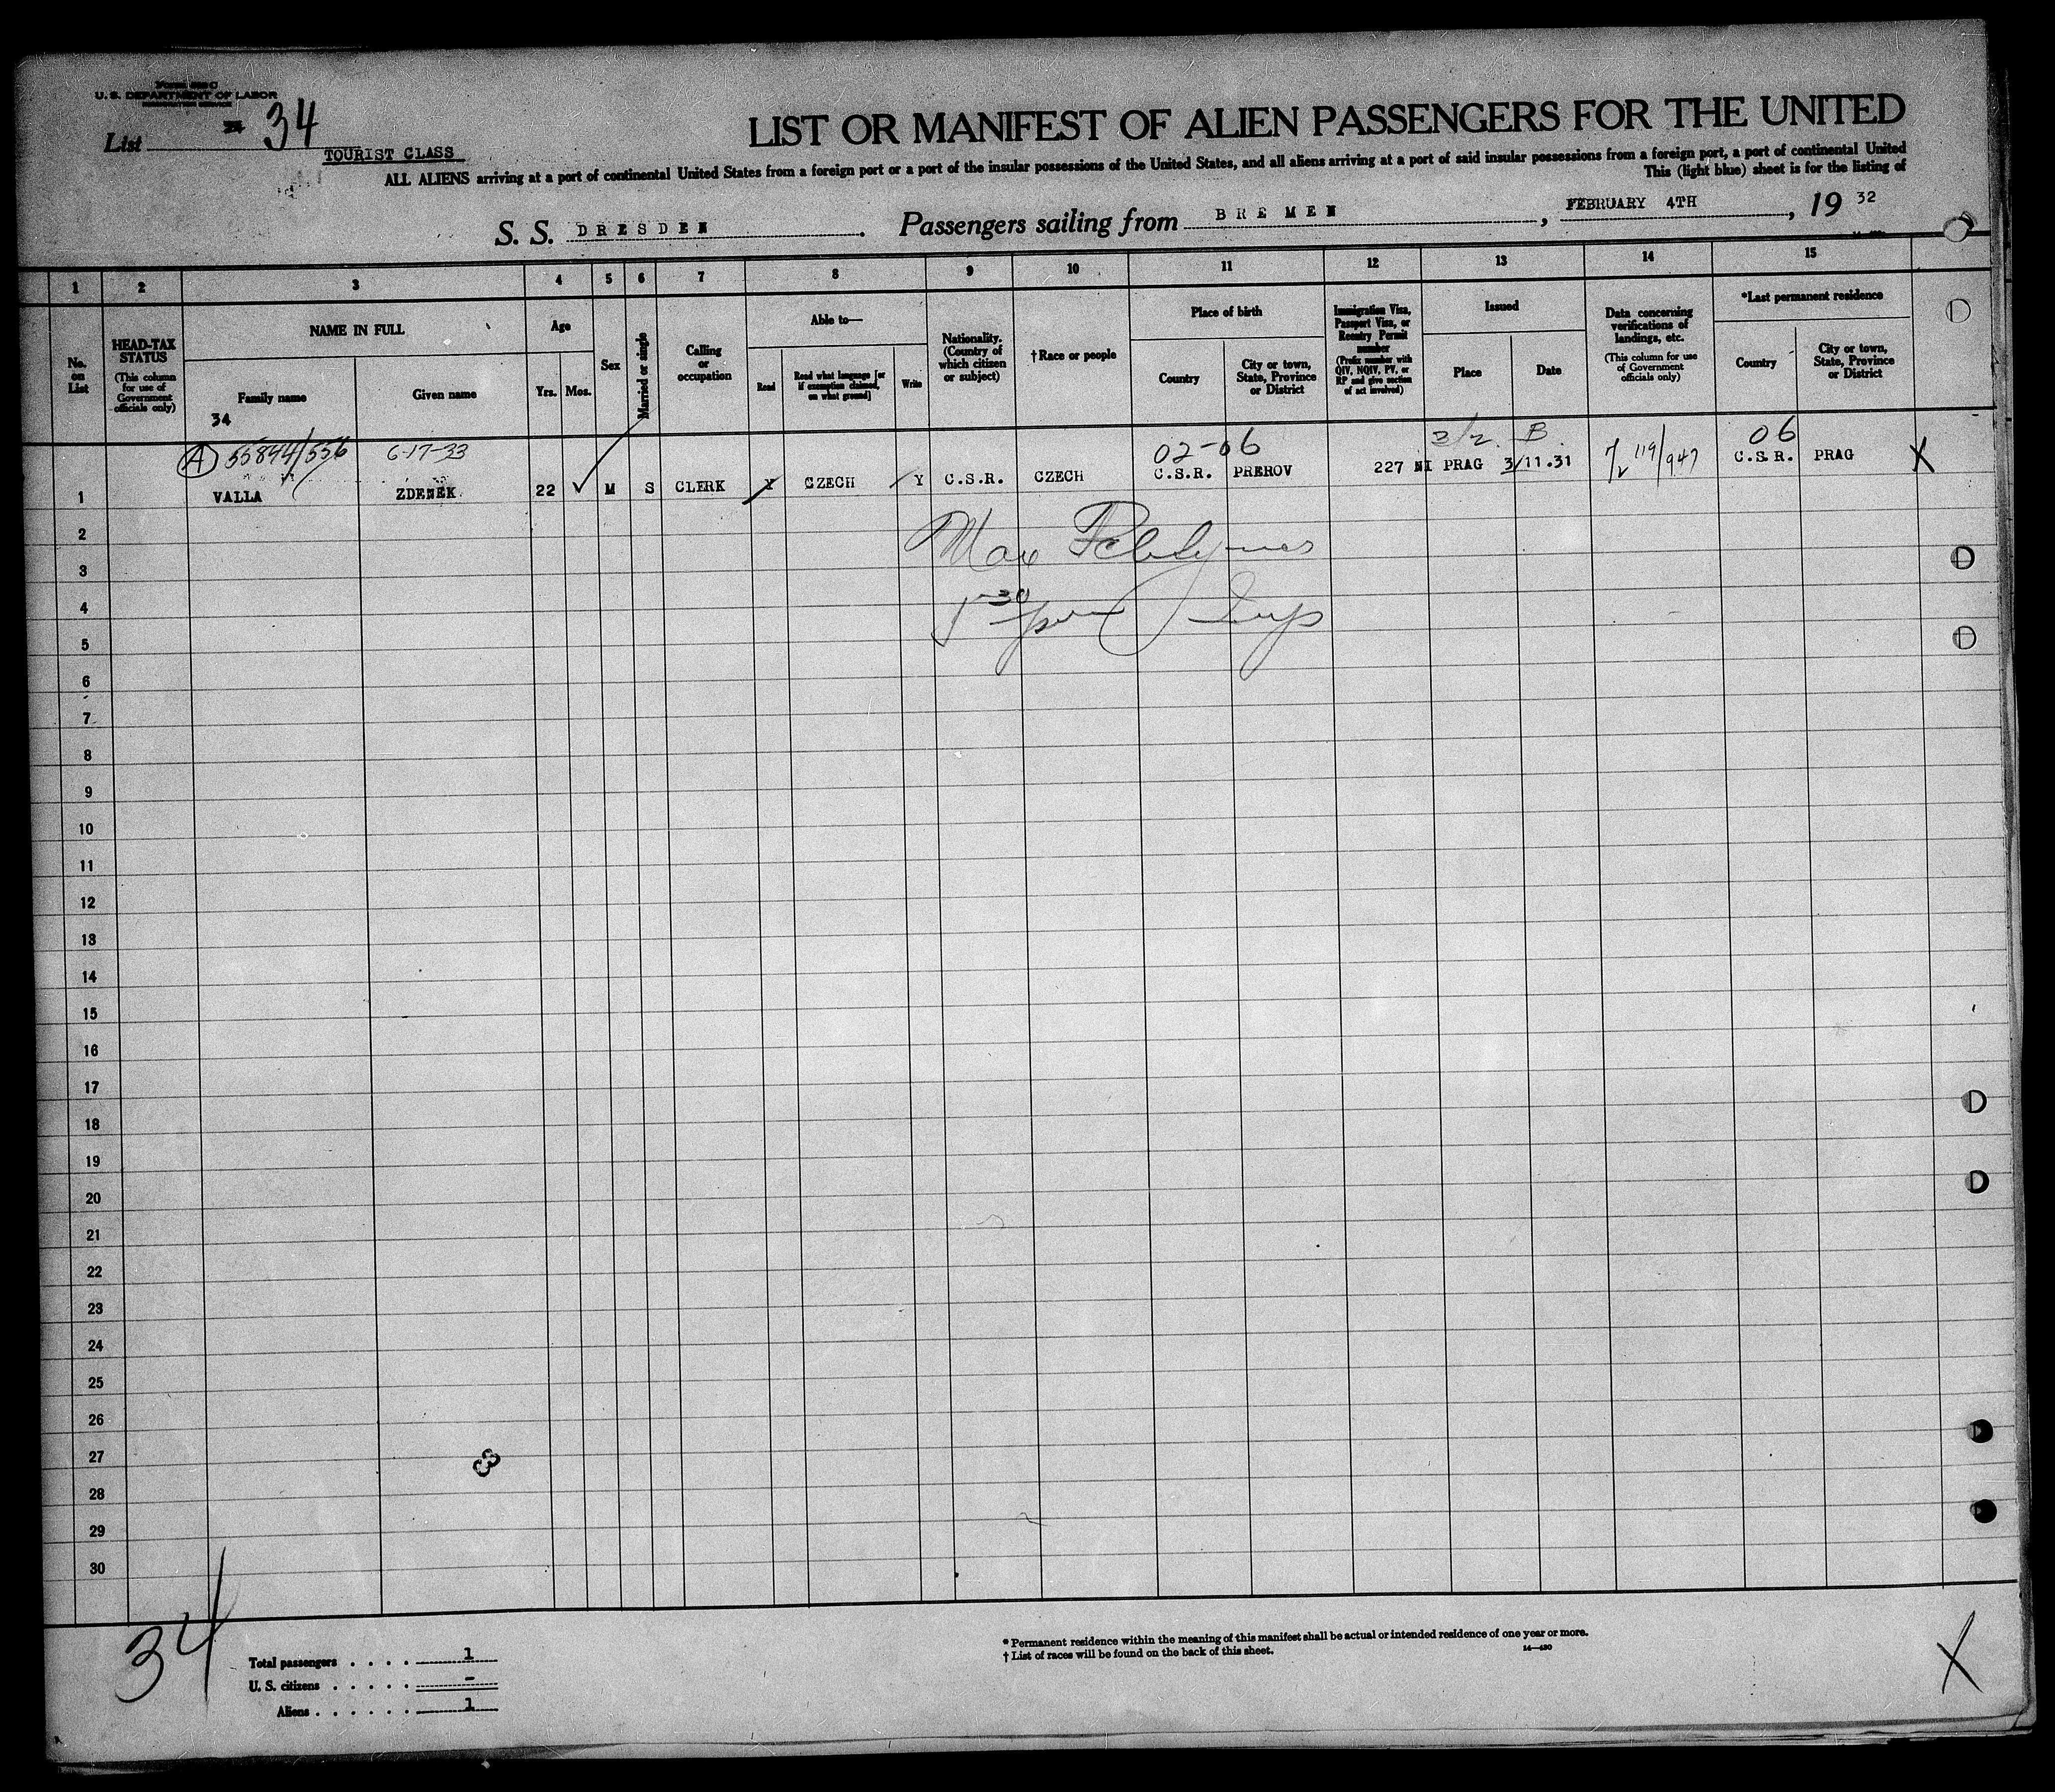 U. S. DEPARTMENT OF LABOR
List 34
TOURIST CLASS
LIST OR MANIFEST OF ALIEN PASSENGERS FOR THE UNITED
ALL ALIENS arriving at a port of continental United States from a foreign port or a port of the insular possessions of the United States, and all aliens arriving at a port of said insular possessions from a foreign port, a port of continental United
This (light blue) sheet is for the listing of
S. S. DRESDEN. Passengers sailing from BREMEN, FEBRUARY 4TH, 19 32
1 2 3 4 5 6 7 8 9 10 11 12 13 14 15
No. on List
HEAD-TAX STATUS
(This column for use of Government officials only)
NAME IN FULL
Family name
Given name
34
Age
Yrs. Mos.
Sex
Married or single
Calling or occupation
Able to—
Read
Read what language [or if exemption claimed, on what ground]
Write
Nationality. (Country of which citizen or subject)
†Race or people
Place of birth
Country
City or town, State, Province or District
Immigration Visa, Passport Visa, or Reentry Permit number
(Prefix number with QIV, NQIV, PV, or RP and give section of act involved)
Issued
Place
Date
Data concerning verifications of landings, etc.
(This column for use of Government officials only)
*Last permanent residence
Country
City or town, State, Province or District
A 55844/556 6-17-33 02-06 B 06
1 VALLA ZDENEK 22 M S CLERK Y CZECH Y C.S.R. CZECH C.S.R. PREROV 227 NI PRAG 3/11.31 119/947 C.S.R. PRAG X
2
Max
3
4
5 30
5
6
7
8
9
10
11
12
13
14
15
16
17
18
19
20
21
22
23
24
25
26
27
28
29
30
34
Total passengers . . . . 1
U. S. citizens . . . . . -
Aliens . . . . . . 1
* Permanent residence within the meaning of this manifest shall be actual or intended residence of one year or more.
† List of races will be found on the back of this sheet.
14—430
X